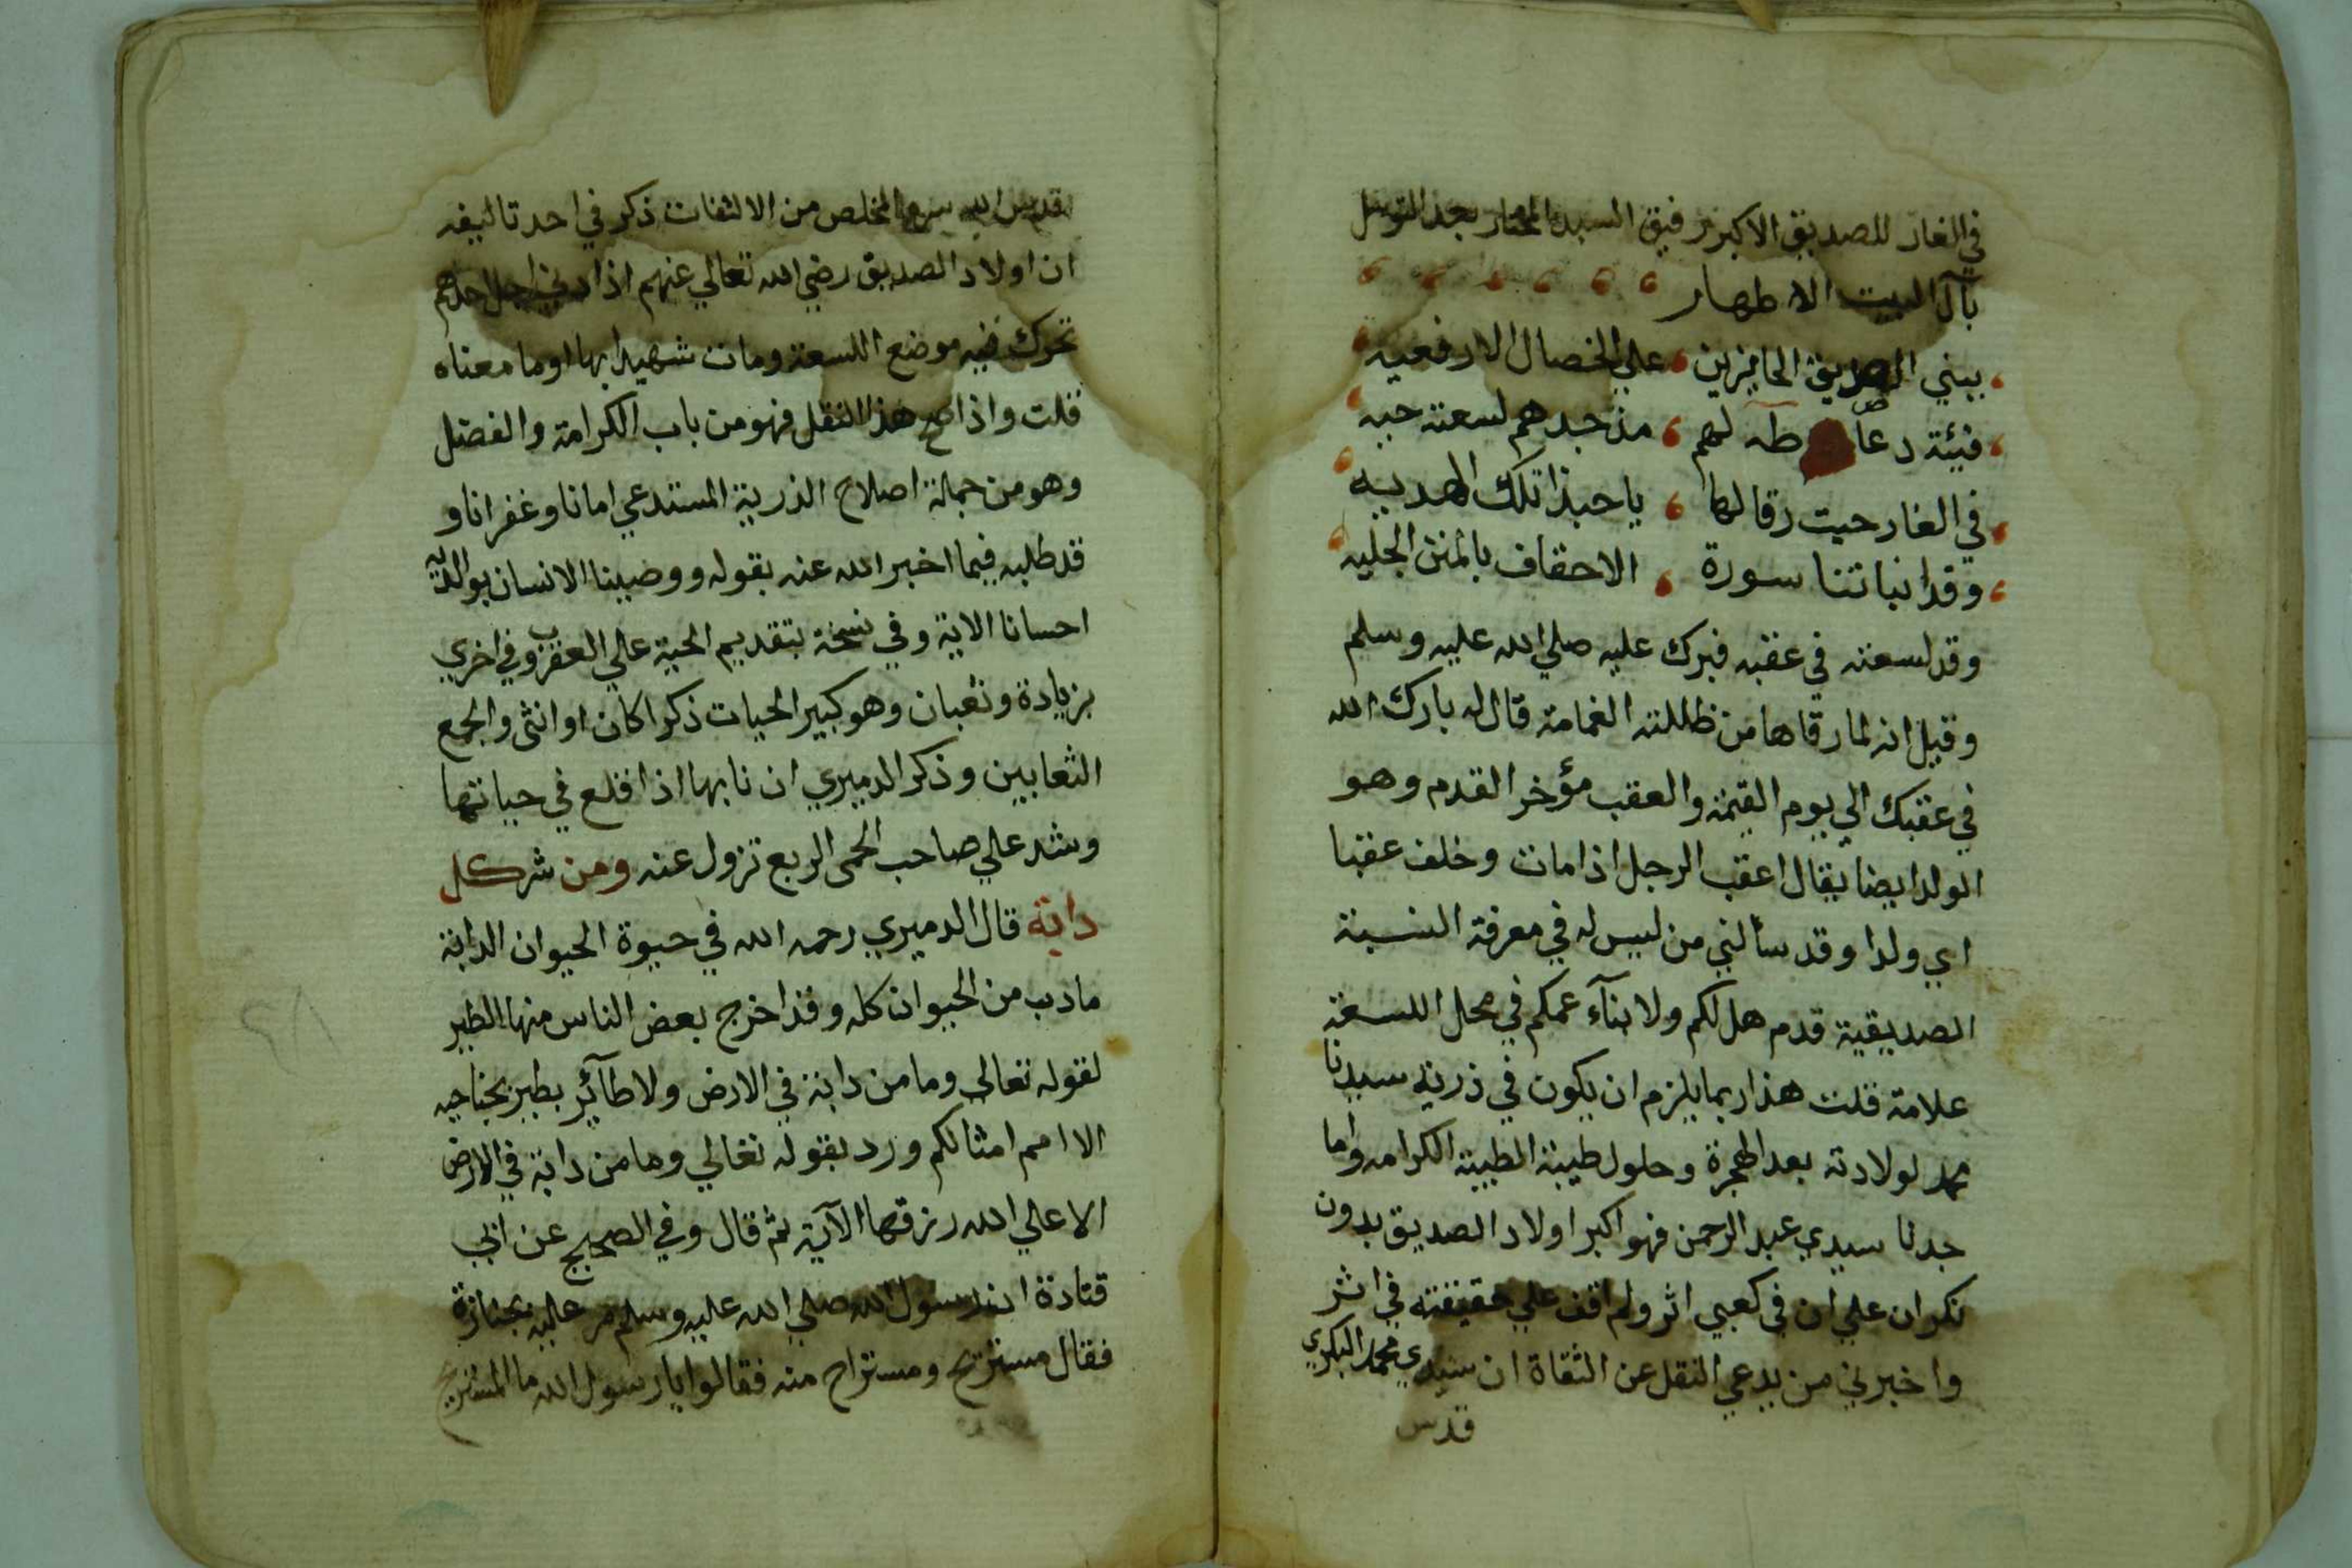 في الغار للصديق الاكبر رفيق السيد المختار بعد التوسل
بآل البيت الاطهار
ببني الصديق الحايزين على الخصال الارفعيه
فيئة دعا طه لهم مذ جدهم لسعته حيه
في الغار حيث رقا لها يا حبذا تلك الهديه
وقد انباتنا سورة الاحقاف بالمنن الجليه
وقد لسعته في عقبه فبرك عليه صلي الله عليه وسلم
وقيل انه لما رقاها من ظللته الغمامة قال له بارك الله
في عقبك الي يوم القيمة والعقب مؤخر القدم وهو
الولد ايضا يقال اعقب الرجل اذا مات وخلف عقبا
اي ولدا وقد سألني من ليس له في معرفة النسبة
الصديقية قدم هل لكم ولابنآء عمكم في محل اللسعة
علامة قلت هذا ربما يلزم ان يكون في ذرية سيدنا
محمد لولادته بعد الهجرة وحلول طيبة الطيبة الكرامه واما
جدنا سيدي عبد الرحمن فهو اكبر اولاد الصديق بدون
نكران علي ان في كعبي اثر ولم اقف علي حقيقته في اثر
واخبرني من يدعي النقل عن الثقاة ان سيدي محمد البكري
قدس
قدس الله سره المخلص من الالتفات ذكر في احد تاليفه
ان اولاد الصديق رضي الله تعالي عنهم اذا دني اجل احدهم
تحرك فيه موضع اللسعة ومات شهيدا بها او ما معناه
قلت واذا صح هذا النقل فهو من باب الكرامة والفضل
وهو من جملة اصلاح الذرية المستدعي امانا وغفرانا و
قد طلبه فيما اخبر الله عنه بقوله ووصينا الانسان بوالديه
احسانا الاية وفي نسخة بتقديم الحية علي العقرب وفي اخري
بزيادة وثعبان وهو كبير الحيات ذكرا كان او انثى والجمع
الثعابين وذكر الدميري ان نابها اذا قلع في حياتها
وشد علي صاحب الحمى الربع تزول عنه ومن شر كل
دابة قال الدميري رحمه الله في حيوة الحيوان الدابة
ما دب من الحيوان كله وقد اخرج بعض الناس منها الطير
لقوله تعالى وما من دابة في الارض ولا طآئر يطير بجناحيه
الا امم امثالكم ورد بقوله تعالي وما من دابة في الارض
الا علي الله رزقها الآية ثم قال وفي الصحيح عن ابي
قتادة ان رسول الله صلي الله عليه وسلم مر عليه بجنازة
فقال مستريح ومستراح منه فقالوا يا رسول الله ما المستريح
٢٨